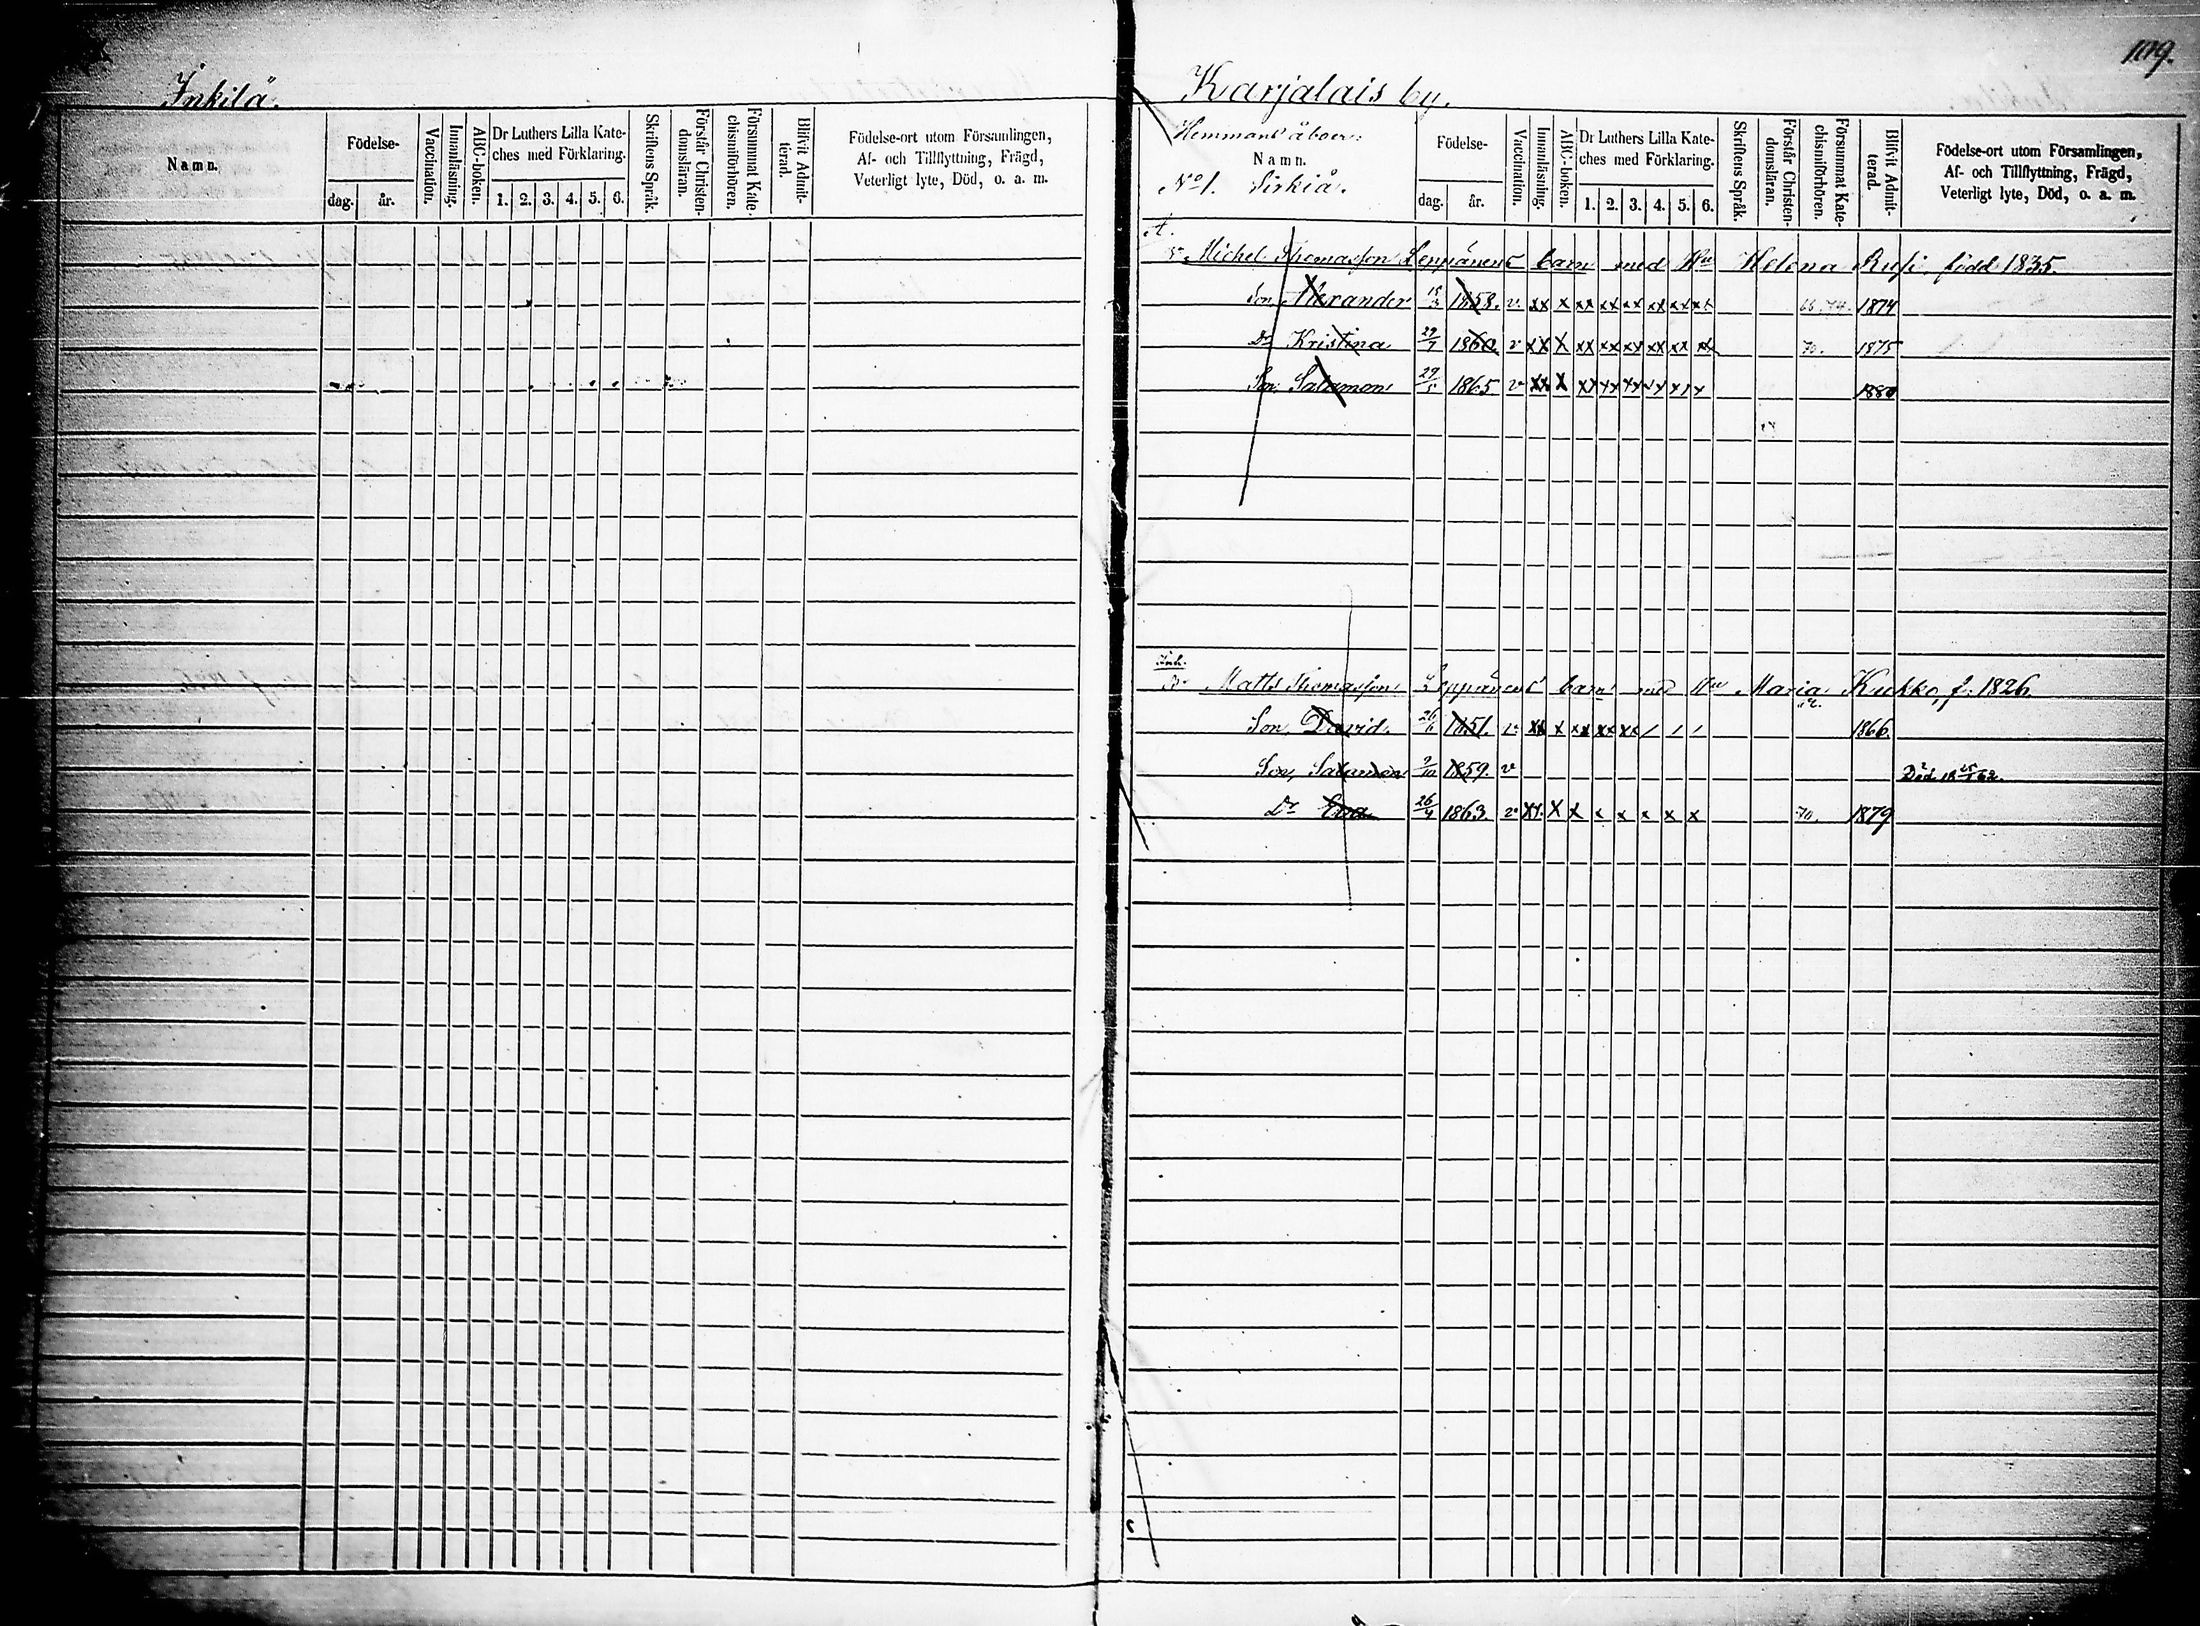 Inkilä.
Namn.
Födelse-
dag. år.
Vaccination.
Innanläsning.
ABC-boken.
Dr Luthers Lilla Kate-
ches med Förklaring.
1. 2. 3. 4. 5. 6.
Skriftens Språk.
Förstår Christen-
domsläran.
Försummat Kate-
chismiförhören.
Blifvit Admit-
terad.
Födelse-ort utom Församlingen,
Af- och Tillflyttning, Frägd,
Veterligt lyte, Död, o. a. m.
109.
Karjalais by.
Hemmans åboer:
Namn.
No 1. Sirkiä.
Födelse-
dag. år.
Vaccination.
Innanläsning.
ABC-boken.
Dr Luthers Lilla Kate-
ches med Förklaring.
1. 2. 3. 4. 5. 6.
Skriftens Språk.
Förstår Christen-
domsläran.
Försummat Kate-
chismiförhören.
Blifvit Admit-
terad.
Födelse-ort utom Församlingen,
Af- och Tillflyttning, Frägd,
Veterligt lyte, Död, o. a. m.
Michel Thomasson Leppänens barn med Hu Helena Rusi, född 1835.
Son, Alexander 1858. v xx x xx xx xx xx xx xx 1874
Dr Kristina 29/7 1860. v xx x xx xx xx xx xx xx 70. 1875
Son Salamon 29/5 1865. v xx x xx xx xx xx 1880
Inh.
Matts Thomasson Leppänens barn med Hu Maria Kukko, f. 1826.
Son, David. 26/6 1851. v xx x xx xx xx / / / 1866.
Son, Salamon 9/10 1859. v Död
Dr Eva 26/4 1863. v xx. x x x x x x x 70. 1879